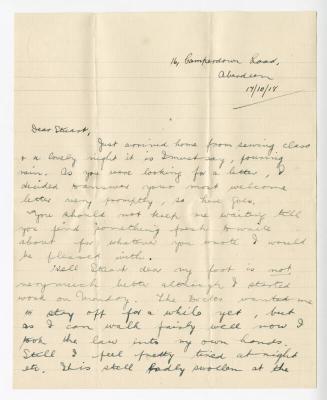 14, Camperdown Road,
Aberdeen
17/10/18
Dear Stuart,
Just arrived home from sewing class
& a lovely night it is I must say, pouring
rain. As you were looking for a letter, I
decided to answer your most welcome
letter very promptly, so here goes.
You should not keep me waiting till
you find something fresh to write
about for whatever you wrote I would
be pleased with.
Well Stuart dear my foot is not
very much better although I started
work on Monday. The Doctor wanted me
to stay off for a while yet, but
as I can walk fairly well now I
took the law into my own hands.
Still I feel pretty tired at night
etc. It is still badly swollen at the